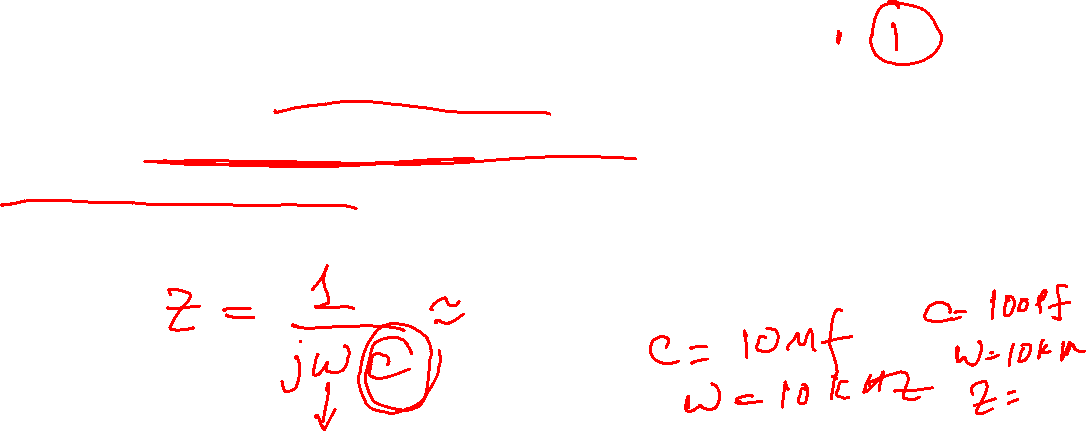 1
Z = 1 / jωC ≈
C = 10 μf
ω = 10 KHZ
C = 100 Pf
ω = 10 K
Z =